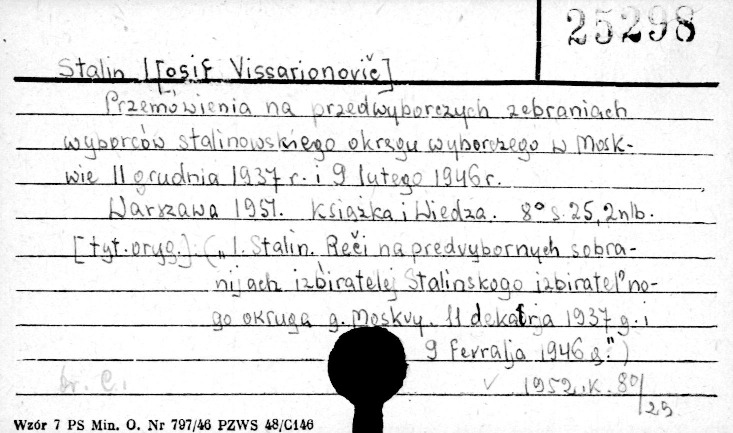 25298
Stalin I[osif Vissarionovič]
Przemówienia na przedwyborczych zebraniach
wyborców stalinowskiego okręgu wyborczego w Mosk-
wie 11 grudnia 1937 r. i 9 lutego 1946 r.
Warszawa 1951. Książka i Wiedza. 8° s. 25, 2 nlb.
[tyt. oryg.]: („I. Stalin. Reči na predvybornych sobra-
nijach izbiratelej Stalinskogo izbiratel"no-
go okruga g. Moskvy. 11 dekabrja 1937 g. i
9 fevralja 1946 g.")
br. C.
✓ 1952. K. 80/29
Wzór 7 PS Min. O. Nr 797/46 PZWS 48/C146